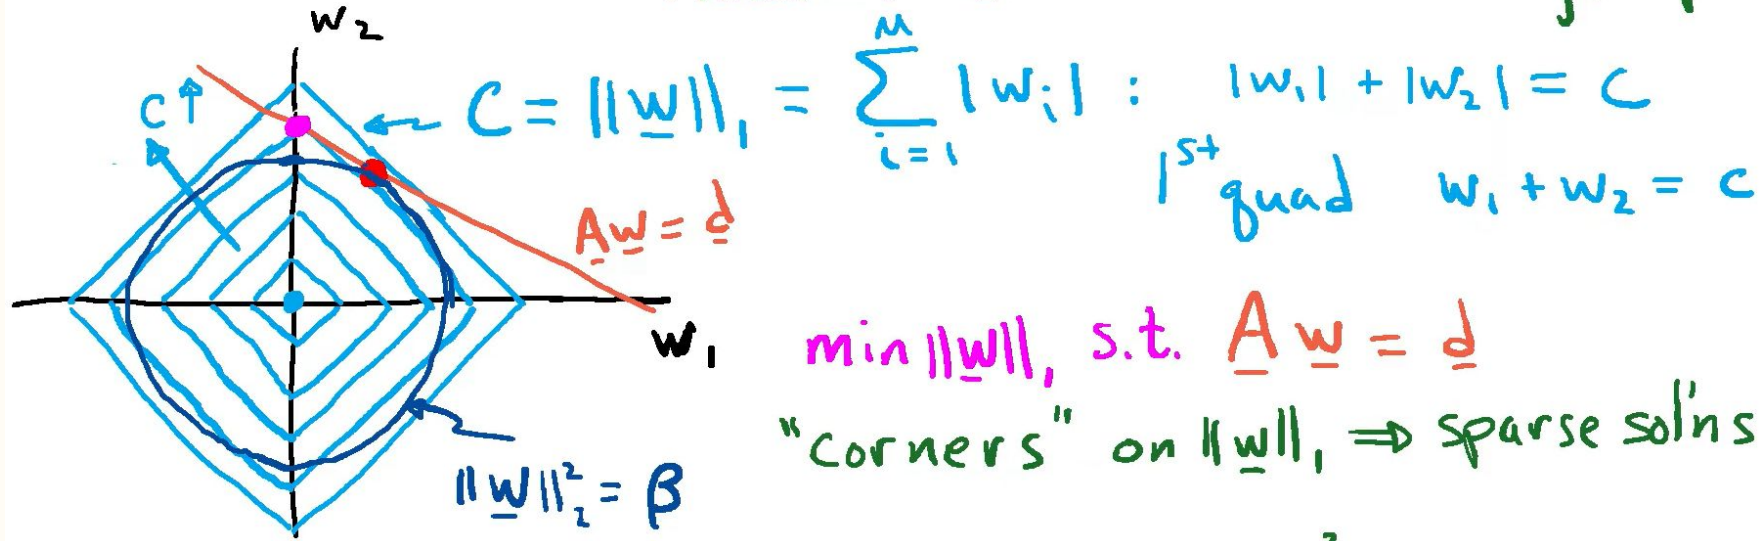 w₂
C↑
C = ||w||₁ = Σ_{i=1}^{M} |wᵢ| : |w₁| + |w₂| = C
1st quad w₁ + w₂ = c
A w = d
w₁
min ||w||₁ s.t. A w = d
"corners" on ||w||₁ ⇒ sparse sol'ns
||w||₂² = β